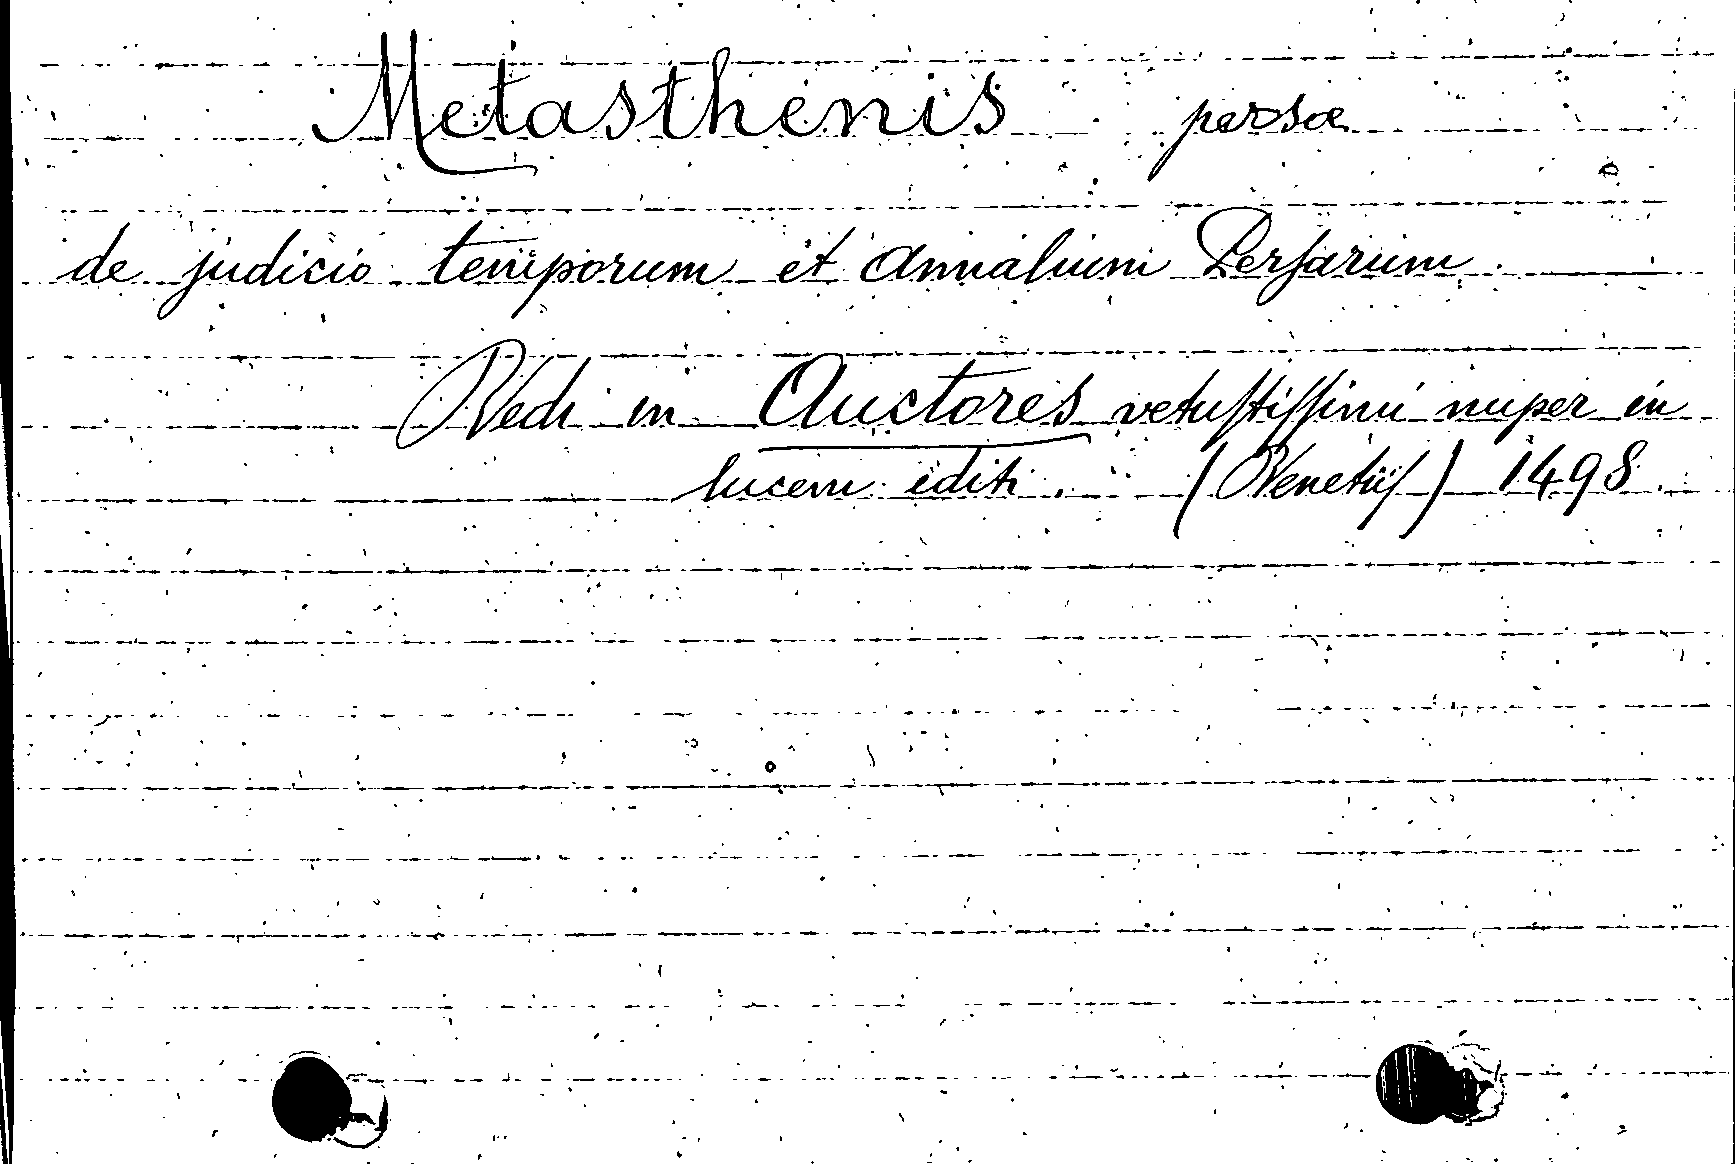 Metasthenis persæ
de judicio temporum et Annalium Persarum.
Vedi in Auctores vetustissimi nuper in
lucem editi. (Venetiis) 1498.